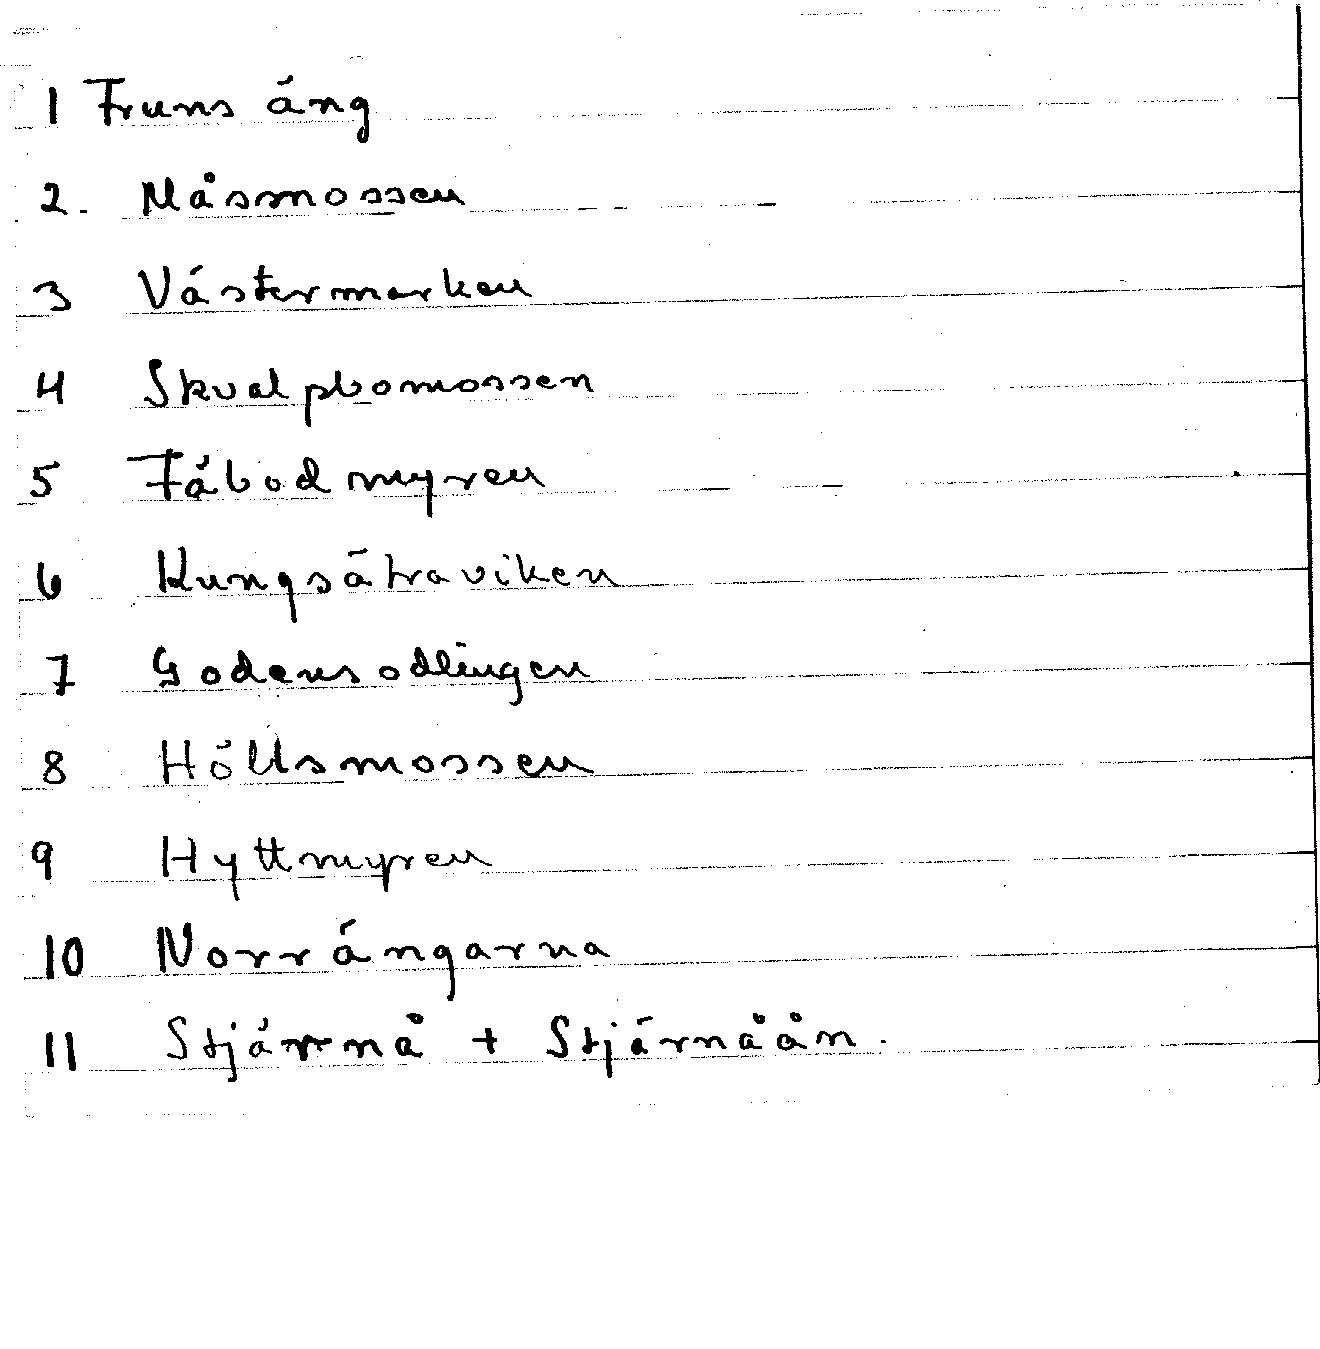 1 Fruns äng
2. Måsmossen
3 Västermarken
4 Skvalpbomossen
5 Fäbodmyren
6 Kungsätraviken
7 Godensodlingen
8 Höllsmossen
9 Hyttmyren
10 Norrängarna
11 Stjärnnå + Stjärnåån.